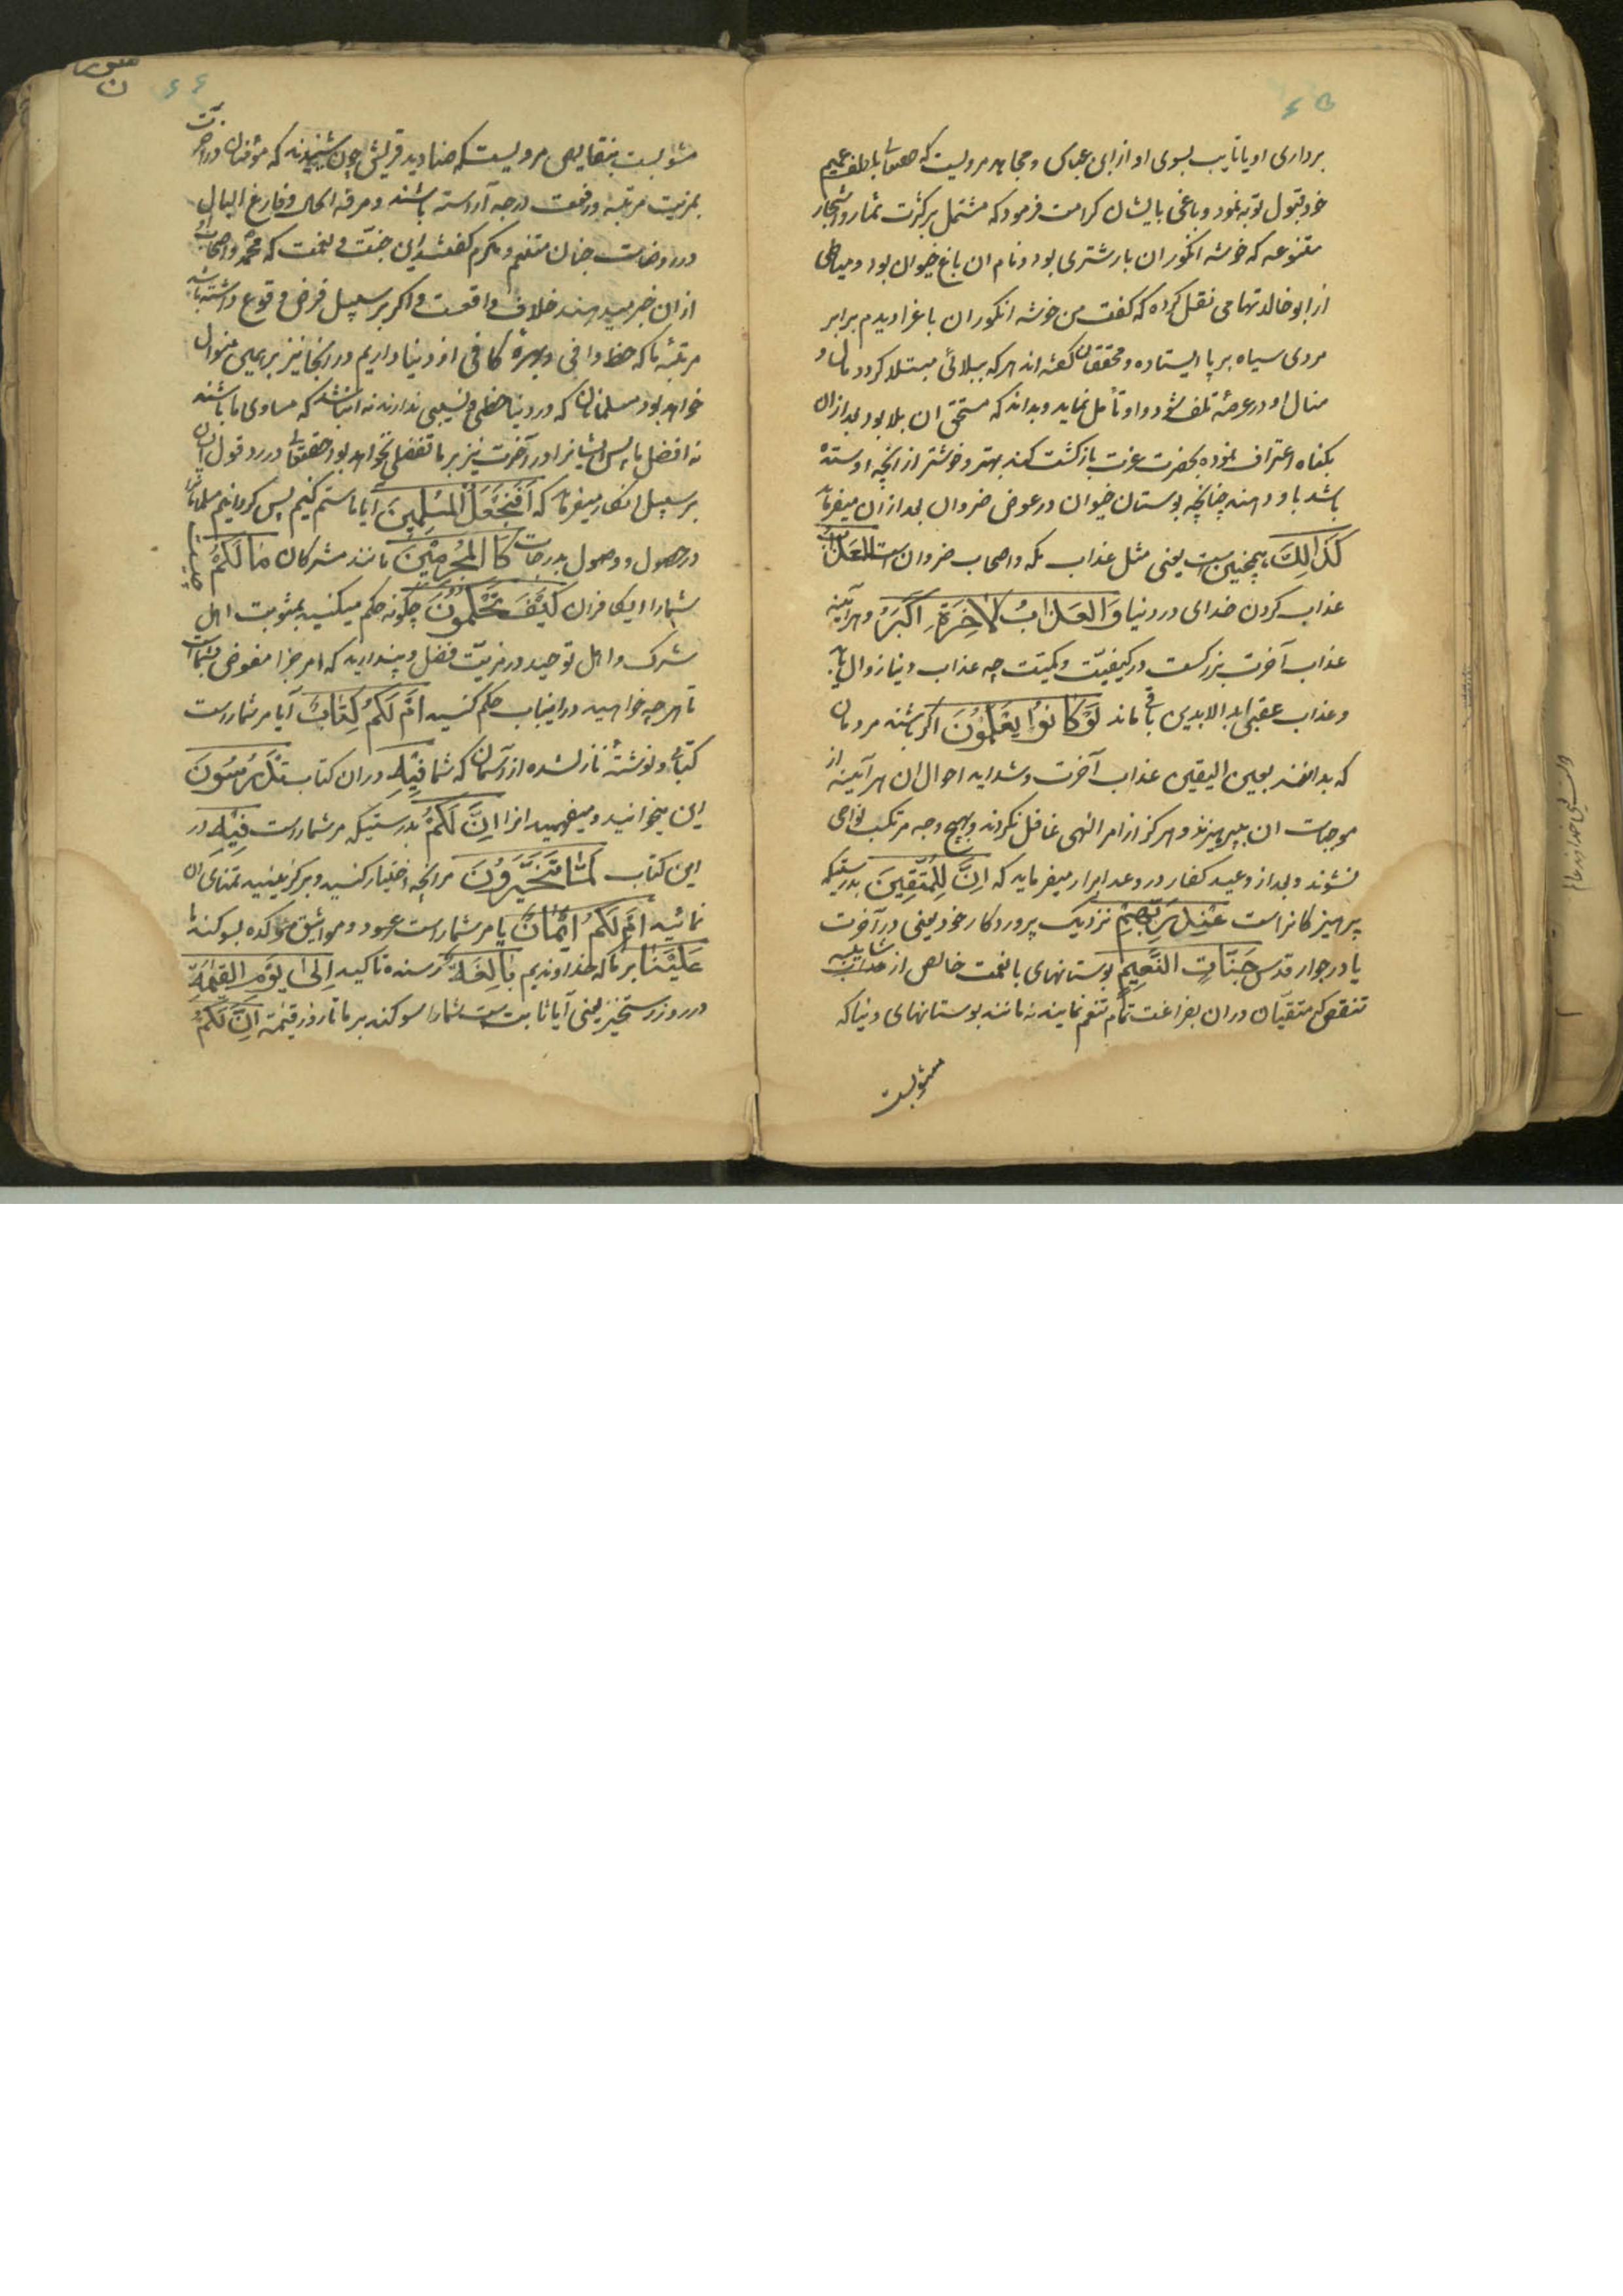 ۶۵
برداری او یا تایب بسوی او از ابن عباس و مجاهد مرویست که حقتعالی بلطف عمیم
خود قبول توبه نمود و باغی بایشان کرامت فرمود که مشتمل بر کثرت ثمار و اشجار
متنوعه که خوشه انگور ان بار شتری بود و نام ان باغ حیوان بود و میاطی
از ابو خالد تهامی نقل کرده که کفت من خوشه انکور ان باغ را دیدم برابر
مردی سیاه بر پا ایستاده و محققان کفته اند هر که ببلائی مبتلا کردد و مال و
منال او در عرضهٔ تلف شود و او تأمل نماید و بداند که مستحق ان بلا بود بعد از ان
بکناه اعتراف نموده بحضرت عزت بازکشت کند بهتر و خوشتر از آنچه ازو ستده
باشد باو دهند چنانچه بوستان حیوان در عوض ضروان بعد از ان میفرماید
كَذَٰلِكَ همچنین است یعنی مثل عذاب مکه و اصحاب ضروان است العَذَابُ
عذاب کردن خدای در دنیا وَالعَذَابُ الآخِرَةِ اَکبَرُ و هر آینه
عذاب آخرت بزرکست در کیفیّت و کمیّت چه عذاب دنیا زوال یابد
و عذاب عقبی ابد الابدین باقی ماند لَوْ كَانُوا يَعْلَمُونَ اکر باشند مردمان
که بدانند بعین الیقین عذاب آخرت و شداید احوال ان هر آینه از
موجبات ان بپرهیزند و هرکز از امر الهی غافل نکردند و بهیچ وجه مرتکب نواهی
نشوند و بعد از وعید کفار در وعد ابرار میفرماید که اِنَّ لِلْمُتَّقِينَ بدرستیکه
پرهیزکانراست عِنْدَ رَبِّهِمْ نزدیک پروردکار خود یعنی در آخرت
یا در جوار قدس جَنَّاتِ النَّعِيمِ بوستانهای با نعمت خالص از شایبه
تنقص که متقیان در ان بفراغت تمام تنعم نمایند نه مانند بوستانهای دنیا که
مشوبست
۶۶
ن
مشوبست بنقایص مرویست که صنادید قریش چون شنیدند که مؤمنان در آخرت
بمزیت مرتبه و رفعت درجه آراسته باشند و مرفه الحال و فارغ البال
در روضات جنان متنعم و مکرم کفتند این جنّت و نعمت که محمد و اصحاب او
از ان خبر میدهند خلاف واقعست و اکر بر سبیل فرض وقوع داشته باشد
مرتبهٔ ما که حظ وافی و بهرهٔ کافی از دنیا داریم در آنجا نیز بر همین منوال
خواهد بود مسلمانان که در دنیا حظی و نصیبی ندارند نه انباشد که مساوی ما باشند
نه افضل ما پس ایشانرا در آخرت نیز بر ما تفضلی نخواهد بود حقتعالی در رد قول ایشان
بر سبیل انکار میفرماید که اَفَنَجْعَلُ الْمُسْلِمِينَ آیا ما ستم کنیم پس کردانیم مسلمانان
در حصول و وصول بدرجات كَالْمُجْرِمِينَ مانند مشرکان مَا لَكُمْ چیست
شما را ای کافران كَيْفَ تَحْكُمُونَ چکونه حکم میکنید بمثوبت اهل
شرک و اهل توحید در مزیّت فضل و پندارید که امر جزا مفوض بشماست
تا هر چه خواهید در اینباب حکم کنید اَمْ لَكُمْ كِتَابٌ آیا مر شماراست
کتابی و نوشتهٔ نازلشده از آسمان که شما فِيهِ در ان کتاب تَدْرُسُونَ
این میخوانید و میفهمید انرا اِنَّ لَكُمْ بدرستیکه مر شماراست فِيهِ در
این کتاب لَمَا تَخَيَّرُونَ مر آنچه اختیار کنید و برکزینید تمنای ان
نمائید اَمْ لَكُمْ اَيْمَانٌ یا مر شماراست عهود و مواثیق مؤکده بسوکندها
عَلَيْنَا بر ما که خداوندیم بَالِغَةٌ رسنده تاکید اِلَىٰ يَوْمِ الْقِيٰمَةِ
در روز رستخیز یعنی آیا ثابت ست شما را سوکند بر ما تا روز قیمة اِنَّ لَكُمْ